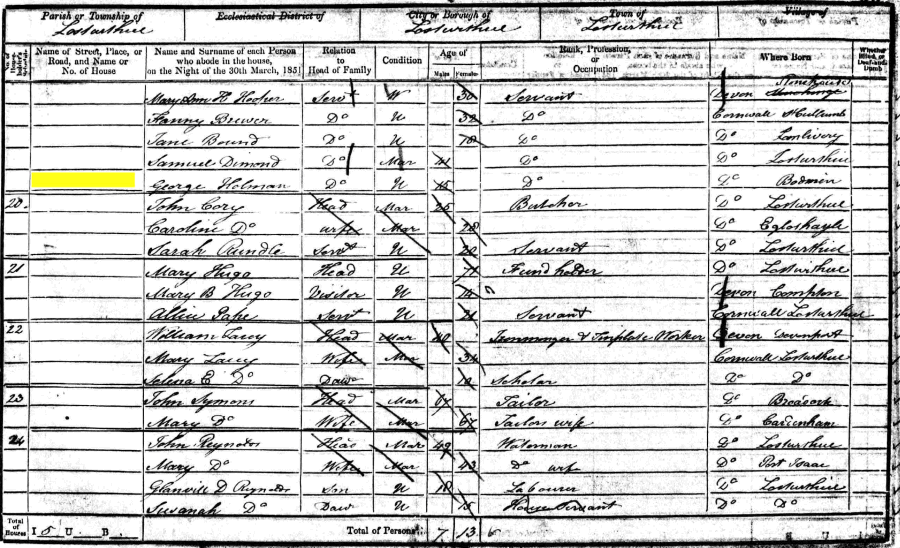 Parish or Township of Ecclesiastical District of City or Borough of Town of Village of
Lostwithiel Lostwithiel Lostwithiel
Name of Street, Place, or Road, and Name or No. of House
Name and Surname of each Person who abode in the house, on the Night of the 30th March, 1851
Relation to Head of Family
Condition
Age of
Males Females
Rank, Profession, or Occupation
Where Born
Whether Blind, or Deaf-and-Dumb
Mary Ann H Hooker Servt W 30 Servant Devon Stonehouse
Fanny Brewer Do U 32 Do Cornwall
Jane Bound Do U 78 Do Do Lanlivery
Samuel Dimond Do Mar 41 Do Do Lostwithiel
George Holman Do U 15 Do Do Bodmin
20 John Cory Head Mar 25 Butcher Do Lostwithiel
Caroline Do Wife Mar 28 Do Egloshayle
Sarah Rundle Servt U 20 Servant Do Lostwithiel
21 Mary Hugo Head U 71 Fundholder Do Lostwithiel
Mary B Hugo Visitor U Devon Compton
Allice Pape Servt U 21 Servant Cornwall Lostwithiel
22 William Lacey Head Mar 40 Ironmonger & Tinplate Worker Devon Devonport
Mary Lacey Wife Mar 34 Cornwall Lostwithiel
Selena E Do Daur 10 Scholar Do Do
23 John Symons Head Mar 67 Tailor Do Broadoak
Mary Do Wife Mar 67 Tailors wife Do Cardenham
24 John Reynolds Head Mar 49 Waterman Do Lostwithiel
Mary Do Wife Mar 43 Do wife Do Port Isaac
Glanvill D Reynolds Son U 18 Labourer Do Lostwithiel
Susanah Do Daur U 15 House Servant Do Do
Total of Houses I 5 U B Total of Persons 7 13